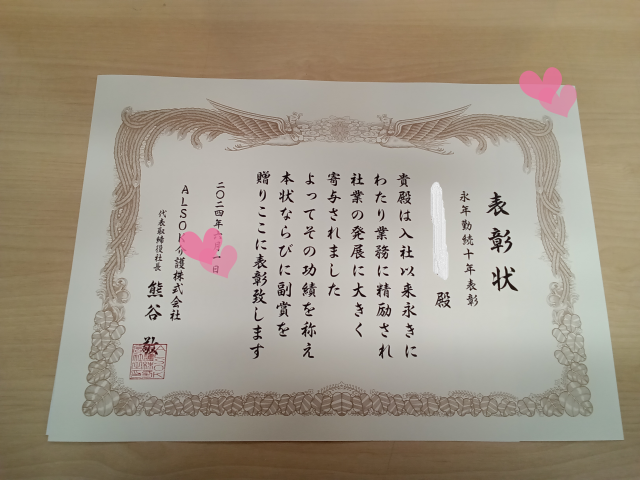 表彰状
永年勤続十年表彰
殿
貴殿は入社以来永きに
わたり業務に精励され
社業の発展に大きく
寄与されました
よってその功績を称え
本状ならびに副賞を
贈りここに表彰致します
二〇二四年六月一日
ALSOK介護株式会社
代表取締役社長 熊谷 敬